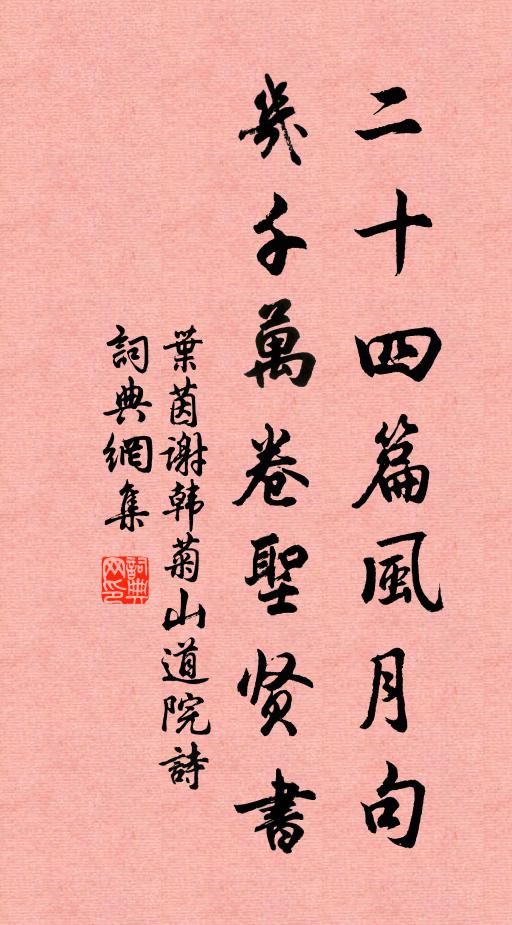 二十四篇風月句
幾千萬卷聖贤書
葉茵谢韩菊山道院詩
詞典網集
詞典网印